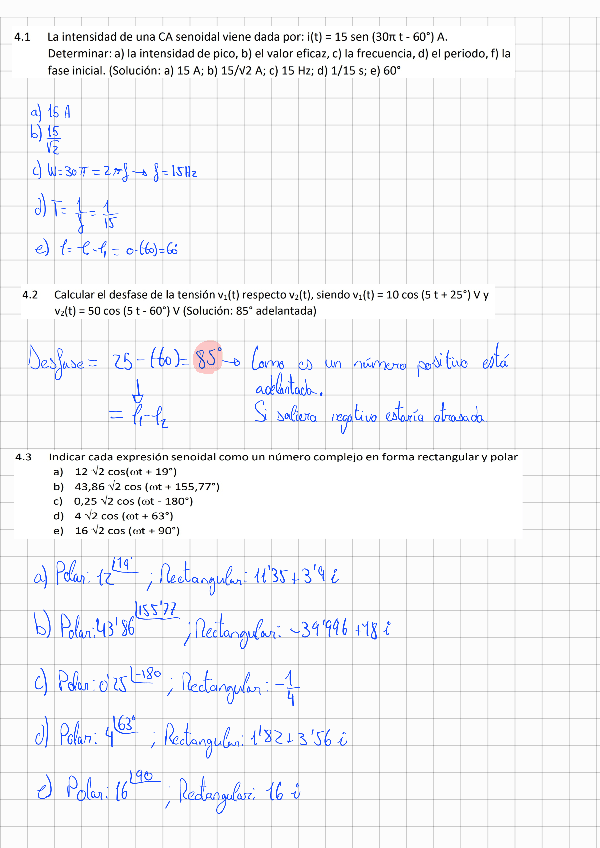 4.1 La intensidad de una CA senoidal viene dada por: i(t) = 15 sen (30π t - 60°) A.
Determinar: a) la intensidad de pico, b) el valor eficaz, c) la frecuencia, d) el periodo, f) la
fase inicial. (Solución: a) 15 A; b) 15/√2 A; c) 15 Hz; d) 1/15 s; e) 60°
a) 15 A
b) 15/√2
c) W=30π = 2πf → f=15Hz
d) T= 1/f = 1/15
e) = 0-(60)=60
4.2 Calcular el desfase de la tensión v₁(t) respecto v₂(t), siendo v₁(t) = 10 cos (5 t + 25°) V y
v₂(t) = 50 cos (5 t - 60°) V (Solución: 85° adelantada)
Desfase = 25 - (-60) = 85° → Como es un número positivo está
adelantada.
= φ₁-φ₂ Si saliera negativo estaría atrasada
4.3 Indicar cada expresión senoidal como un número complejo en forma rectangular y polar
a) 12 √2 cos(ωt + 19°)
b) 43,86 √2 cos (ωt + 155,77°)
c) 0,25 √2 cos (ωt - 180°)
d) 4 √2 cos (ωt + 63°)
e) 16 √2 cos (ωt + 90°)
a) Polar: 12∠19° ; Rectangular: 11'35 + 3'9 i
b) Polar: 43'86∠155'77 ; Rectangular: -39'996 + 18 i
c) Polar: 0'25∠-180 ; Rectangular: -1/4
d) Polar: 4∠63° ; Rectangular: 1'82 + 3'56 i
e) Polar: 16∠90 ; Rectangular: 16 i